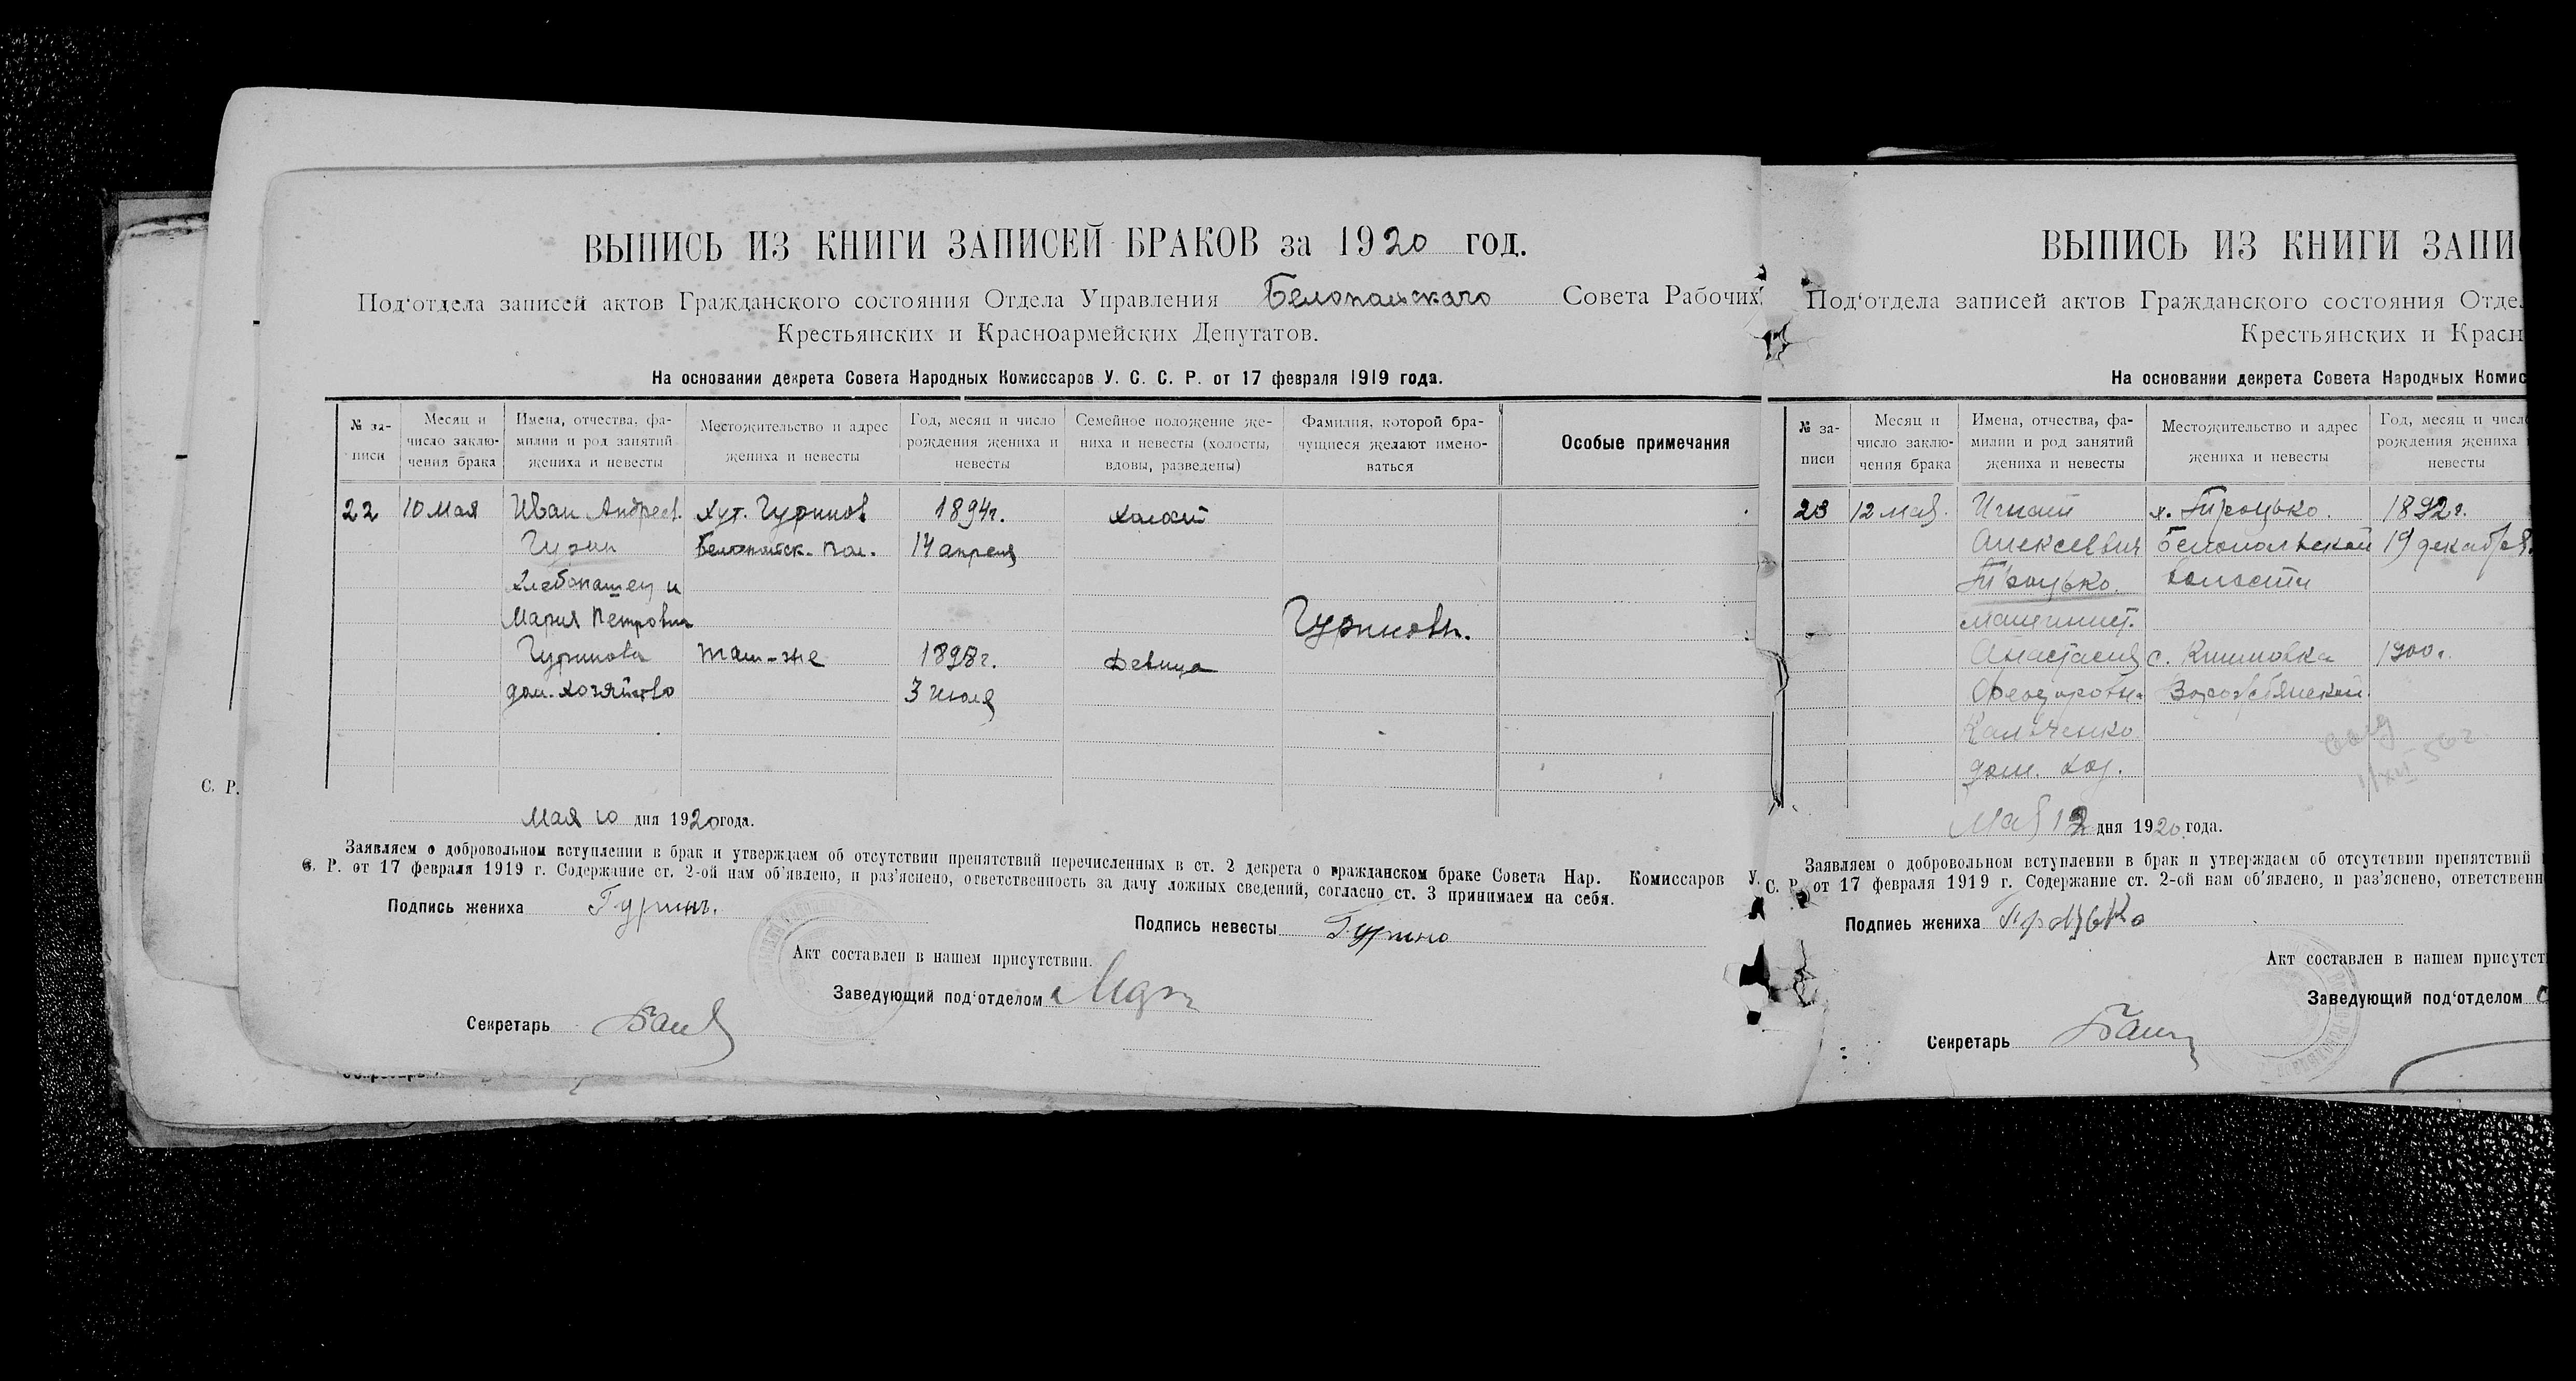 ВЫПИСЬ ИЗ КНИГИ ЗАПИСЕЙ БРАКОВ за 1920 год.
Под‘отдела записей актов Гражданского состояния Отдела Управления Белопольскаго Совета Рабочих,
Крестьянских и Красноармейских Депутатов.
На основании декрета Совета Народных Комиссаров У. С. С. Р. от 17 февраля 1919 года.
№ за-
писи
Месяц и
число заклю-
чения брака
Имена, отчества, фа-
милии и род занятий
жениха и невесты
Местожительство и адрес
жениха и невесты
Год, месяц и число
рождения жениха и
невесты
Семейное положение же-
ниха и невесты (холосты,
вдовы, разведены)
Фамилия, которой бра-
чущиеся желают имено-
ваться
Особые примечания
22 10 Мая Иван Андреев. Хут. Гуринов 1894г. холост
Гурин 14 апреля
Хлебопашец и
Мария Петровна
Гуриновы.
Гуринова там-же 1898г. Девица
дом. хозяйство 3 июля
Мая 10 дня 1920 года.
Заявляем о добровольном вступлении в брак и утверждаем об отсутствии препятствий перечисленных в ст. 2 декрета о гражданском браке Совета Нар. Комиссаров У.
С. Р. от 17 февраля 1919 г. Содержание ст. 2-ой нам об‘явлено, и раз‘яснено, ответственность за дачу ложных сведений, согласно ст. 3 принимаем на себя.
Подпись жениха Гуринъ.
Подпись невесты Гурино
Акт составлен в нашем присутствии.
Заведующий под‘отделом
Секретарь
С. Р.
ВЫПИСЬ ИЗ КНИГИ ЗАПИ
Под‘отдела записей актов Гражданского состояния Отде
Крестьянских и Красн
На основании декрета Совета Народных Комис
№ за-
писи
Месяц и
число заклю-
чения брака
Имена, отчества, фа-
милии и род занятий
жениха и невесты
Местожительство и адрес
жениха и невесты
Год, месяц и число
рождения жениха
невесты
23 12 мая. Игнат х. Троцько. 1892г.
Алексеевич Белопольской 19 декабря.
Троцько. волости
машинист.
Анастасия с. 1900г.
Феодоровн. Ворожбянской
Кальченко
дом. хоз.
Мая 12 дня 1920 года.
Заявляем о добровольном вступлении в брак и утверждаем об отсутствии препятствий
С. Р. от 17 февраля 1919 г. Содержание ст. 2-ой нам об‘явлено, и раз‘яснено, ответственн
Подпись жениха Троцько
Акт составлен в нашем присутст
Заведующий под‘отделом
Секретарь